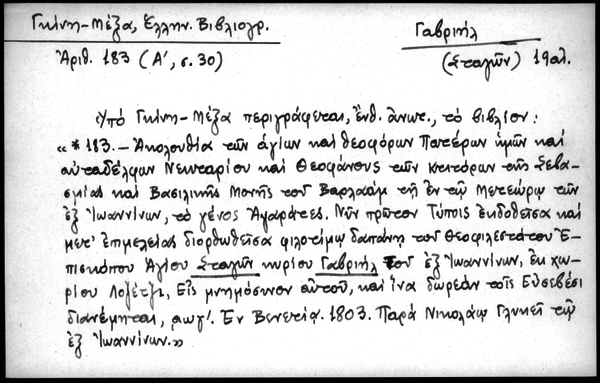 Γκίνη-Μέξα, Ἑλλην. Βιβλιογρ.
Γαβριήλ
Ἀριθ. 183 (Α', σ. 30)
(Σταγῶν) 19αι.
Ὑπό Γκίνη-Μέξα περιγράφεται, ἐνθ. ἄνωτ., τό βιβλίον:
«*183.- Ἀκολουθία τῶν ἁγίων καί θεοφόρων Πατέρων ἡμῶν καί
αὐταδέλφων Νεκταρίου καί Θεοφάνους τῶν κτιτόρων τῆς Σεβα-
σμίας καί Βασιλικῆς Μονῆς τοῦ Βαρλαάμ τῆ ἐν τῷ Μετεώρῳ τῶν
ἐξ Ἰωαννίνων, τό γένος Ἀψαράτες. Νῦν πρῶτον Τύποις ἐκδοθεῖσα καί
μετ' ἐπιμελείας διορθωθεῖσα φιλοτίμῳ δαπάνῃ τοῦ Θεοφιλεστάτου Ἐ-
πισκόπου Ἁγίου Σταγῶν κυρίου Γαβριήλ τοῦ ἐξ Ἰωαννίνων, ἐκ χω-
ρίου Λοζέτζι, Εἰς μνημόσυνον αὐτοῦ, καί ἵνα δωρεάν τοῖς Εὐσεβέσι
διανέμηται, αωγ'. Ἐν Βενετίᾳ. 1803. Παρά Νικολάῳ Γλυκεῖ τῷ
ἐξ Ἰωαννίνων.»